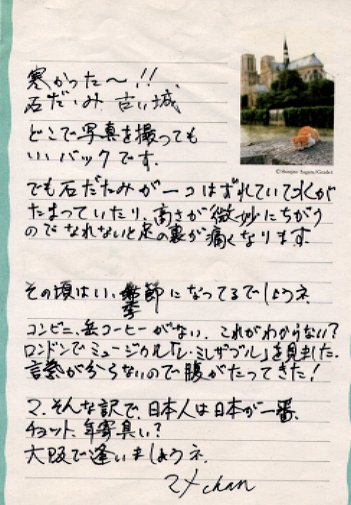 寒かった〜!!
石だたみ、古い城
どこで写真を撮っても
いいバックです。
でも石だたみが一コはずれていて水が
たまっていたり、高さが微妙にちがう
のでなれないと足の裏が痛くなります。
その頃はいい季節になってるでしょうネ
コンビニ、缶コーヒーがない、これがわからない?
ロンドンでミュージカル「レ・ミレザブル」を見ました。
言葉が分らないので腹がたってきた!
マ、そんな訳で、日本人は日本が一番、
チョット、年寄臭い?
大阪で逢いましょうネ
マメchan